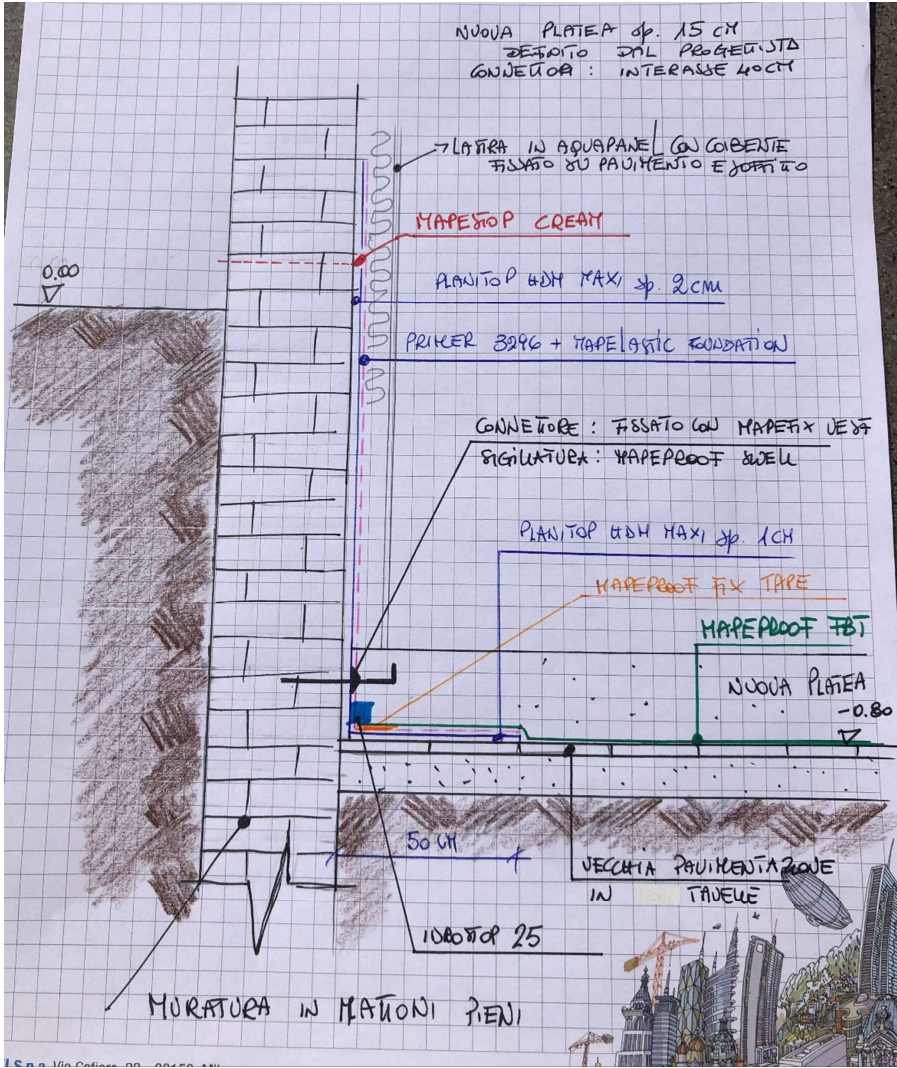 NUOVA PLATEA sp. 15 CM
DEFINITO DAL PROGETTISTA
CONNETTORI : INTERASSE 40CM
LASTRA IN AQUAPANEL CON COIBENTE
FISSATO SU PAVIMENTO E SOFFITTO
MAPESTOP CREAM
0.00
PLANITOP HDM MAXI sp. 2 CM
PRIMER 3296 + MAPELASTIC FOUNDATION
CONNETTORE : FISSATO CON MAPEFIX VESF
SIGILLATURA : MAPEPROOF SWELL
PLANITOP HDM MAXI sp. 1 CM
MAPEPROOF FIX TAPE
MAPEPROOF FBT
NUOVA PLATEA
-0.80
50 CM
VECCHIA PAVIMENTAZIONE
IN TAVELLE
IDROSTOP 25
MURATURA IN MATTONI PIENI
S.p.A. Via Cafiero, 22 - 20158